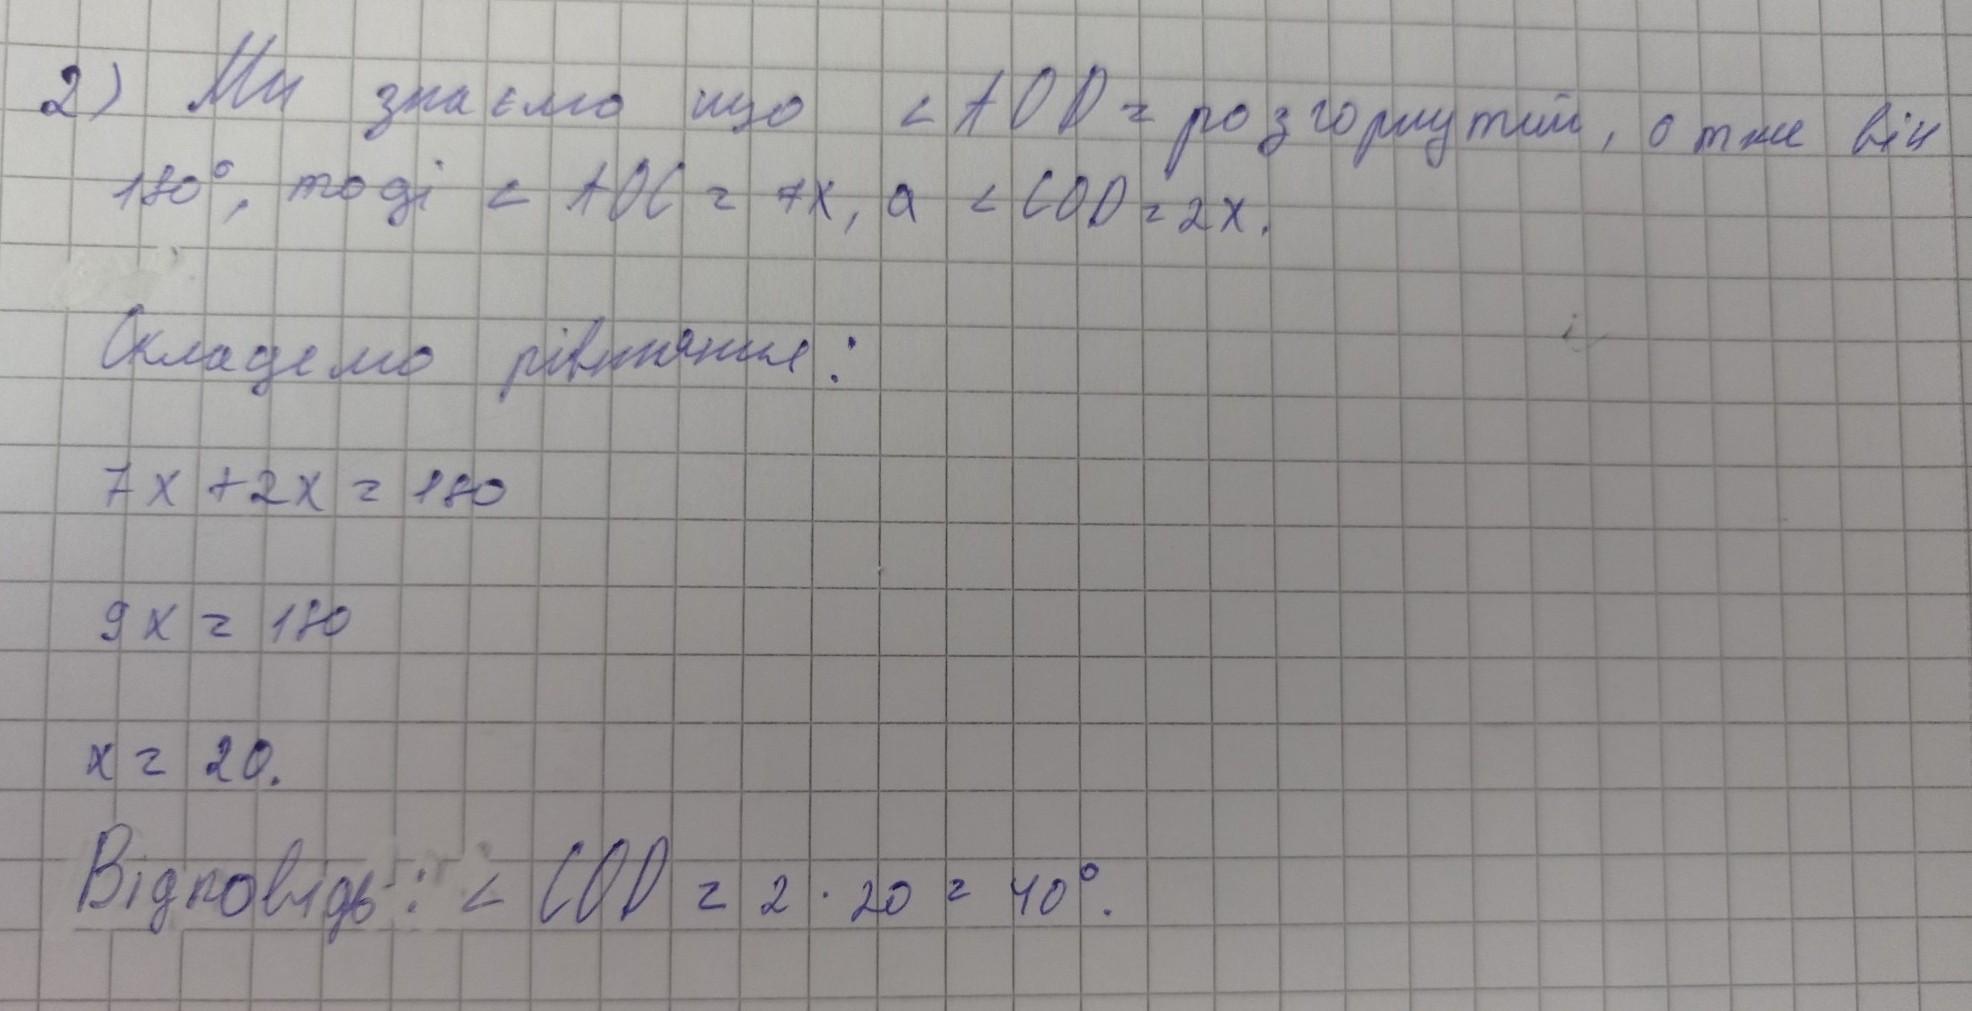 2) Ми знаємо що < AOD = розгорнутий, отже він
180°, тоді < AOC = 7x, а < COD = 2x.
Складемо рівняння:
7x + 2x = 180
9x = 180
x = 20.
Відповідь: < COD = 2 · 20 = 40°.